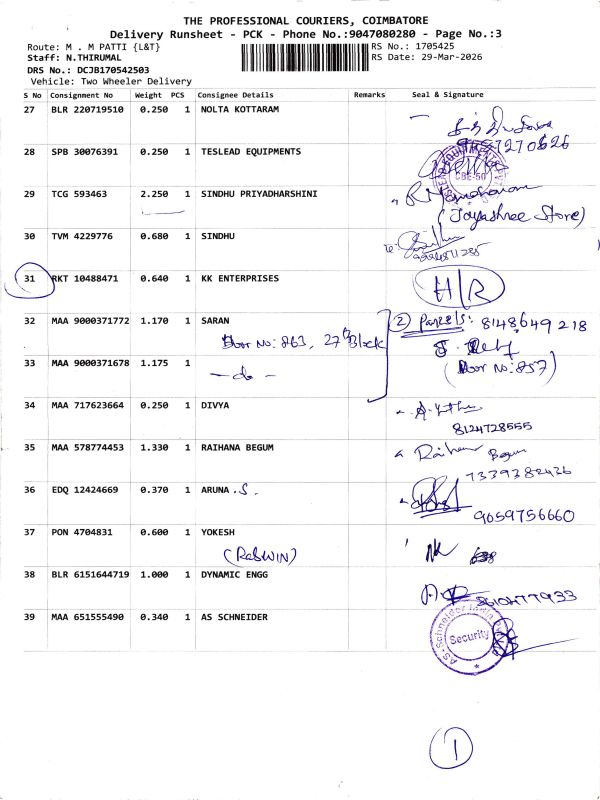 THE PROFESSIONAL COURIERS, COIMBATORE
Delivery Runsheet - PCK - Phone No.:9047080280 - Page No.:3
Route: M . M PATTI {L&T} RS No.: 1705425
Staff: N.THIRUMAL RS Date: 29-Mar-2026
DRS No.: DCJB170542503
Vehicle: Two Wheeler Delivery
S No Consignment No Weight PCS Consignee Details Remarks Seal & Signature
27 BLR 220719510 0.250 1 NOLTA KOTTARAM
28 SPB 30076391 0.250 1 TESLEAD EQUIPMENTS
29 TCG 593463 2.250 1 SINDHU PRIYADHARSHINI
(Jayashree Store)
30 TVM 4229776 0.680 1 SINDHU
31 RKT 10488471 0.640 1 KK ENTERPRISES H/R
32 MAA 9000371772 1.170 1 SARAN (2) Parcels: 8148649218
Door No: 863, 27th Block
33 MAA 9000371678 1.175 1 (Door No: 857)
- do -
34 MAA 717623664 0.250 1 DIVYA
8124728555
35 MAA 578774453 1.330 1 RAIHANA BEGUM Raihana Begum
7339382426
36 EDQ 12424669 0.370 1 ARUNA .S.
9659756660
37 PON 4704831 0.600 1 YOKESH
(RabWIN)
38 BLR 6151644719 1.000 1 DYNAMIC ENGG
39 MAA 651555490 0.340 1 AS SCHNEIDER
Security
1